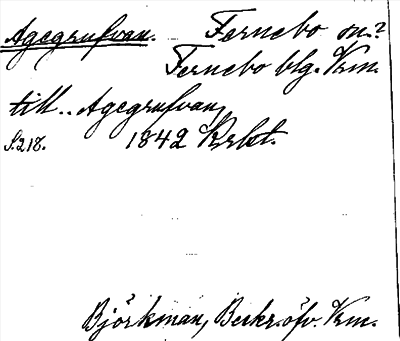 Agegrufvan. Fernebo sn.?
Fernebo blg. Vrm.
till.. Agegrufvan,
S. 218. 1842 Krbst.
Björkman, Beskr. öfv. Vrm.